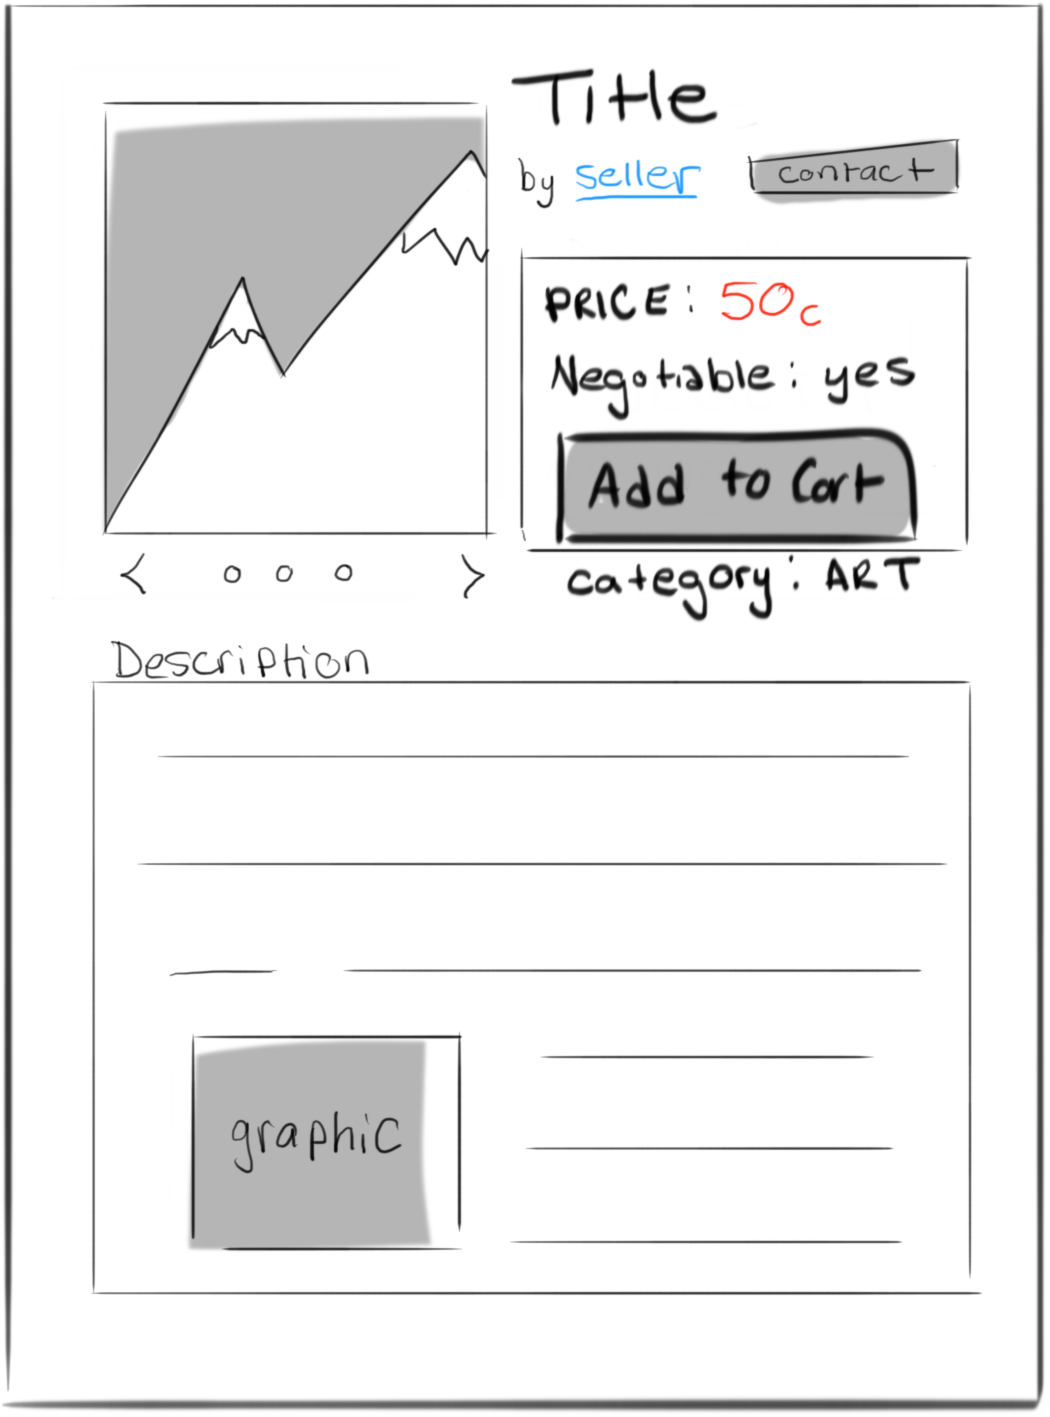 Title
by seller contact
PRICE: 50c
Negotiable: yes
Add to Cart
category: ART
< >
Description
graphic